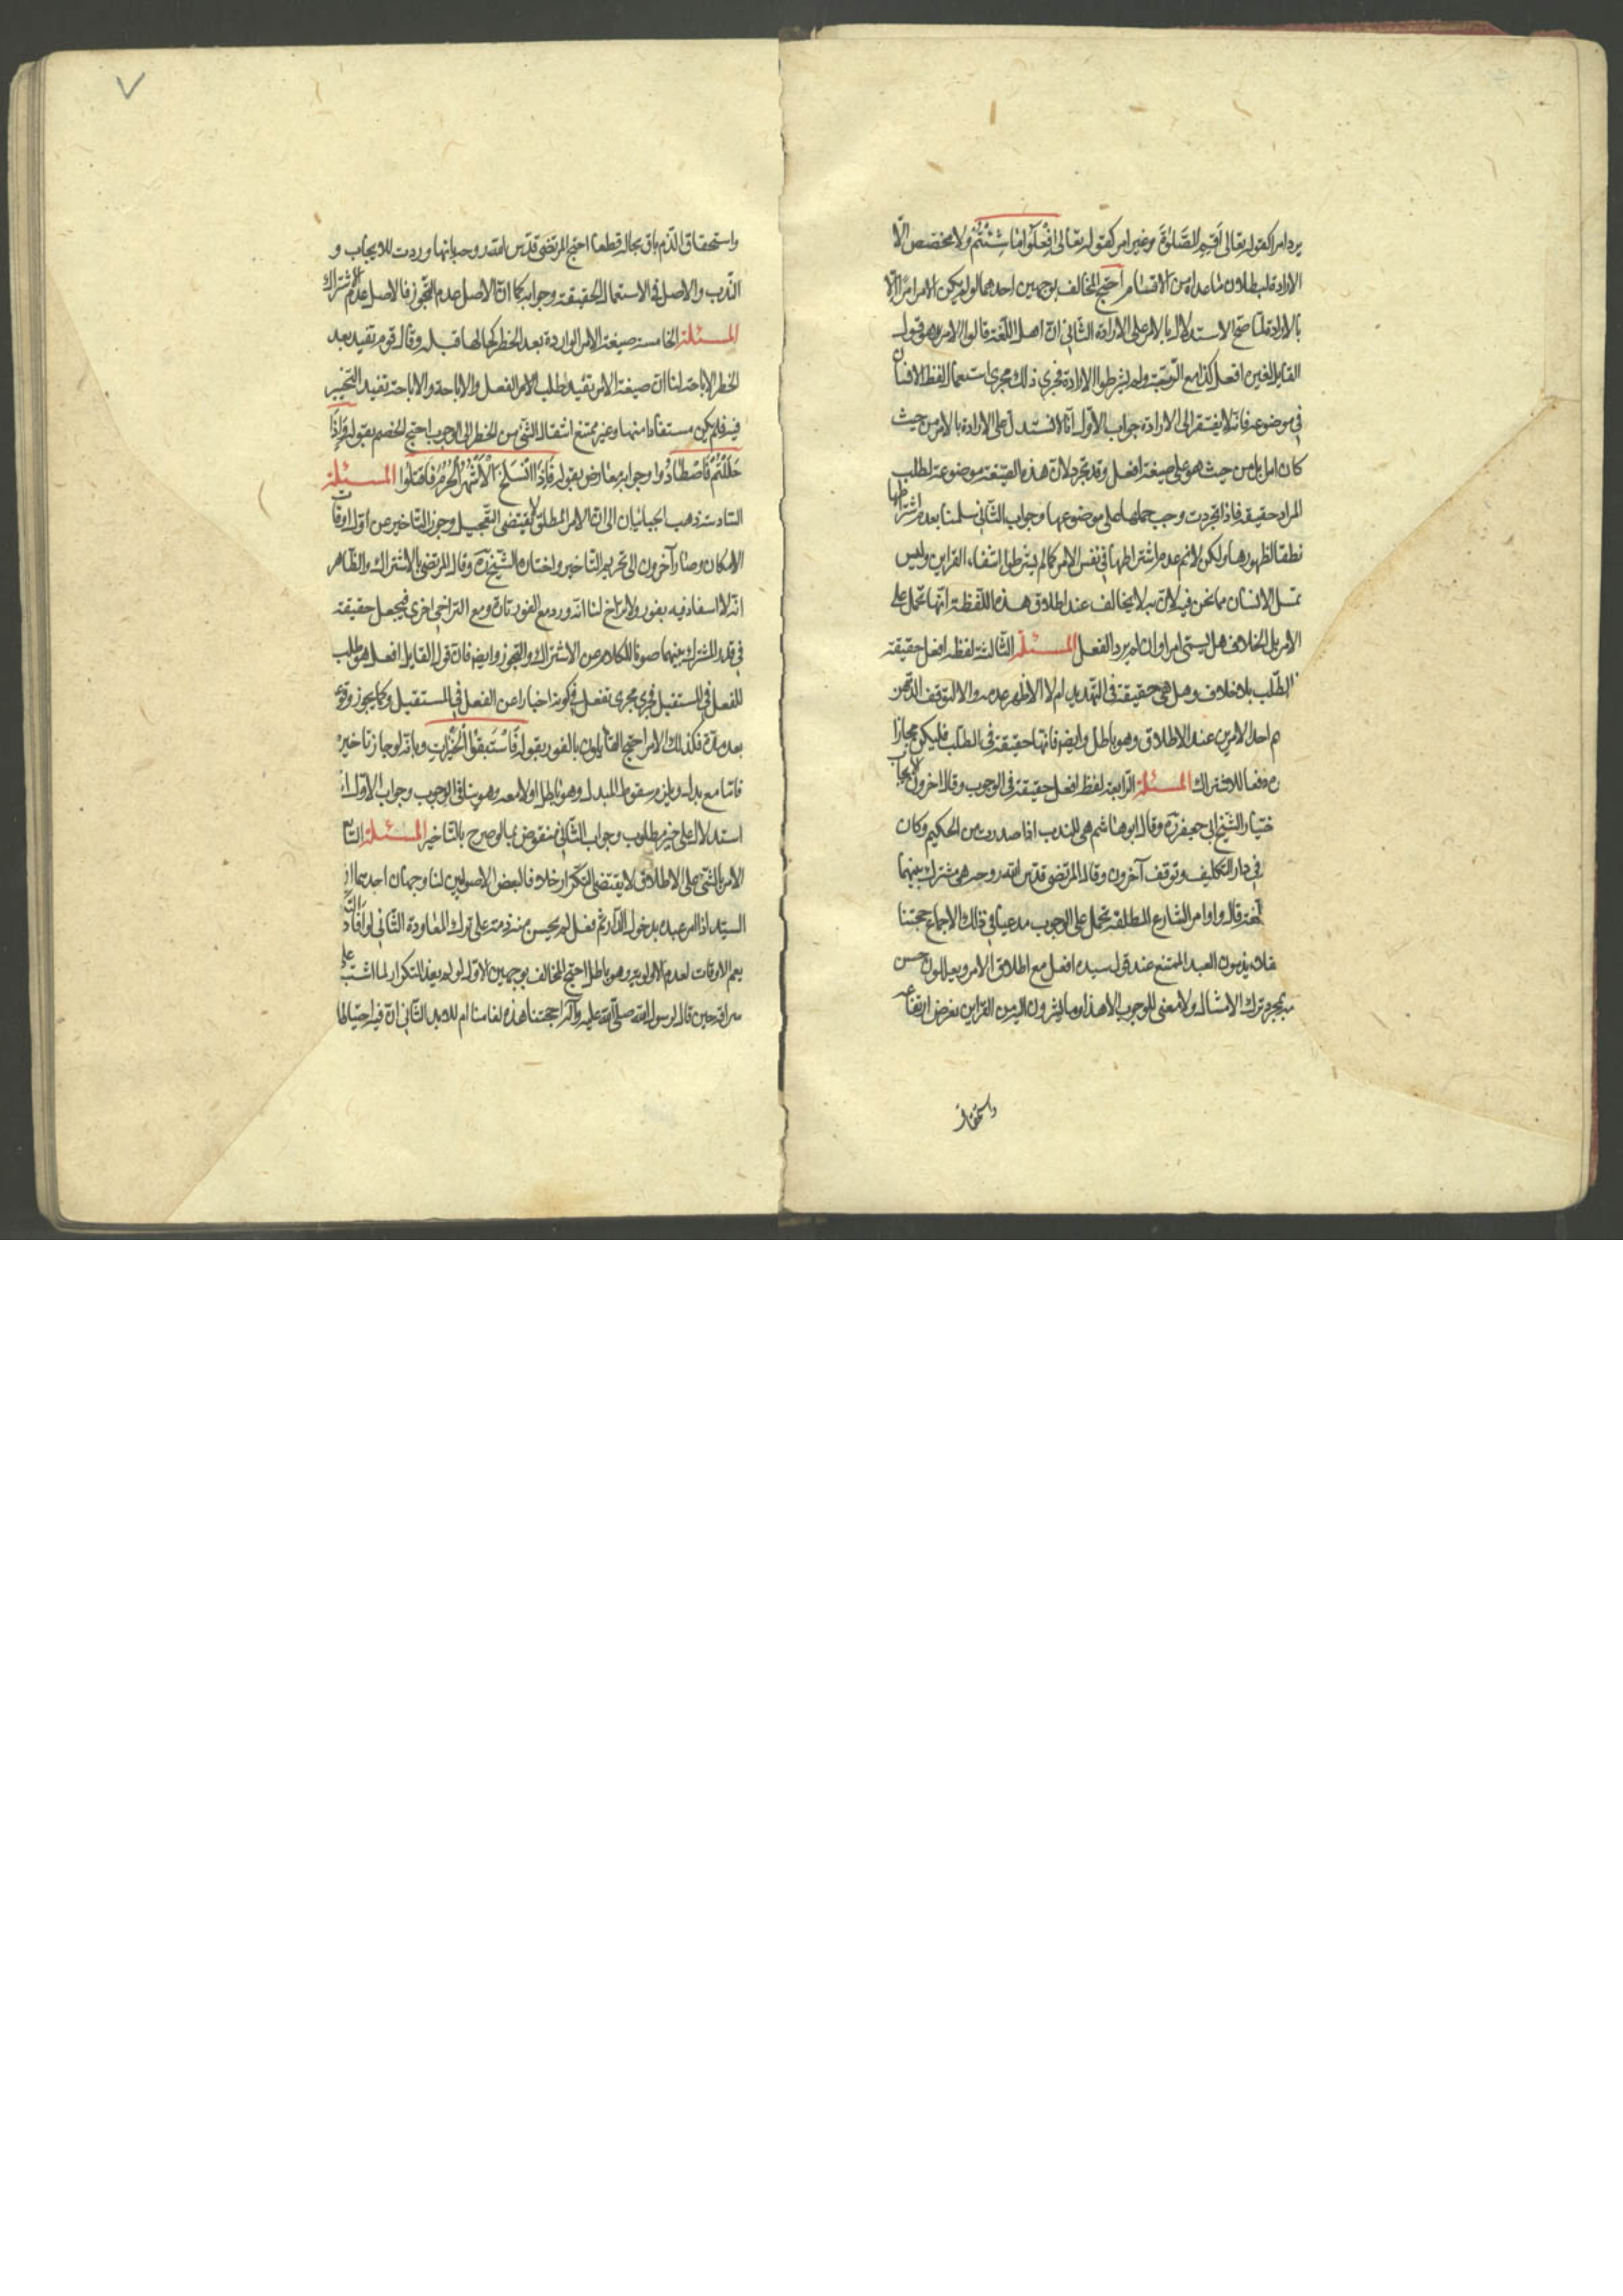 يرد امرا كقوله تعالى اقيموا الصَّلوٰةَ وغير امر كقوله تعالى اِفْعَلُوا ما شِئْتُمْ ولا مخصص الّا
الارادة لبطلان ما عداه من الاقسام احتج المخالف بوجهين احدهما لو لم يكن الامر امرا الّا
بالارادة لما صح الاستدلال بالامر على الارادة الثاني انّ اهل اللّغة قالوا الامر هو قول
القايل لغيره افعل كذا مع الرّتبة ولم يشرطوا الارادة فجرى ذلك مجرى استعمال لفظ الانسان
في موضوعه فانّه لا يفتقر الى الارادة جواب الاوّل انّا لا نستدل على الارادة بالامر من حيث
كان امرا بل من حيث هو على صيغة افعل وقد تجرد لانّ هذه الصّيغة موضوعة لطلب
المراد حقيقة فاذا تجردت وجب حملها على موضوعها وجواب الثّاني سلمنا بعدم اشتراطها
نطقا لظهورها ولكن لا نم عدم اشتراطها في نفس الامر كما لم يشرطوا انتفاء القراين وليس
تمثل الانسان مما نحن فيه لانّ المخالف عند اطلاق هذه اللّفظة انّها تحمل على
الامر بل الخلاف هل يسمّى امرا وان لم يرد الفعل المسئلة الثّالثة لفظ افعل حقيقة
الطّلب بلا خلاف وهل هي حقيقة في التّهديد ام لا الاظهر عدمه والا لتوقف الذّهن
احد الامرين عند الاطلاق وهو باطل وايضا فانّها حقيقة في الطّلب فليكن مجازا
دفعا للاشتراك المسئلة الرّابعة لفظ افعل حقيقة في الوجوب وقال اخرون
ختيار الشّيخ ابى جعفر ره وقال ابو هاشم هي للندب اذا صدرت من الحكيم وكان
في دار التّكليف وتوقف آخرون وقال المرتضى قدّس اللّه روحه هي مشترك بينهما
لغة قال واوامر الشّارع المطلقة تحمل على الوجوب مدعيا في ذلك الاجماع حجتنا
يذمون العبد الممتنع عند قول سيده افعل مع اطلاق الامر ويعللون حسن
بمجرد ترك الامتثال ولا معنى للوجوب الا هذا وما يشيرون اليه من القراين نفرض ارتفاعه
واستحقاق
واستحقاق الذّم باق بحاله قطعا احتج المرتضى قدّس اللّه روحه بانّها وردت للايجاب و
النّدب والاصل في الاستعمال الحقيقة وجوابه كما انّ الاصل عدم التّجوز فالاصل عدم الاشتراك
المسئلة الخامسة صيغة الامر الواردة بعد الحظر كحالها قبله وقال قوم تفيد بعد
الحظر الاباحة لنا انّ صيغة الامر تفيد طلب الامر الفعل والاباحة والاباحة تفيد التّخيير
فيه فلم يكن مستفادا منها وغير ممتنع انتقال الشّئ من الحظر الى الوجوب احتج الخصم بقوله وَاِذَا
حَلَلْتُمْ فَاصْطَادُوا وجوابه معارض بقوله فَاِذَا انْسَلَخَ الْاَشْهُرُ الْحُرُمُ فَاقْتُلُوا المسئلة
السّادسة ذهب الجبائيان الى انّ الامر المطلق لا يقتضى التّعجيل وجوز التّاخير عن اوّل اوقات
الامكان وصار آخرون الى تحريم التّاخير واختاره الشّيخ ره وقال المرتضى بالاشتراك والظّاهر
انّه لا اشعار فيه بفور ولا تراخ لنا انّه ورد مع الفور تارة ومع التراخى اخرى فيجعل حقيقة
في قدر المشترك بينهما صونا للكلام عن الاشتراك والتجوز وايضا فانّ قول القايل افعل هو طلب
للفعل في المستقبل فجرى مجرى تفعل في كونه اخبارا عن الفعل في المستقبل وكما يجوز وقوعه
بعد مدّة فكذلك الامر احتج القايلون بالفور بقوله فَاسْتَبِقُوا الْخَيْرَاتِ وبانّه لو جاز تاخيره
فامّا مع بدل ويلزم سقوط المبدل وهو باطل او لا معه وهو ينافى الوجوب وجواب الاوّل انّه
استدلال على غير مطلوب وجواب الثّانى منقوض بما لو صرح بالتّاخير المسئلة
الامر بالشّئ على الاطلاق لا يقتضى التكرار خلافا لبعض الاصوليين لنا وجهان احديهما انّ
السيّد اذا امر عبده بدخول الدّار ثمّ فعل لم يحسن منه ذمّه على ترك المعاودة الثّانى
يعم الاوقات لعدم الاولويّة وهو باطل احتج المخالف بوجهين الاوّل لو لم يفد التكرار لما اشتبه على
سراقة حين قال لرسول اللّه صلّى اللّه عليه وآله احجتنا هذه لعامنا ام للابد الثّانى انّ فيه احتياطا
٧